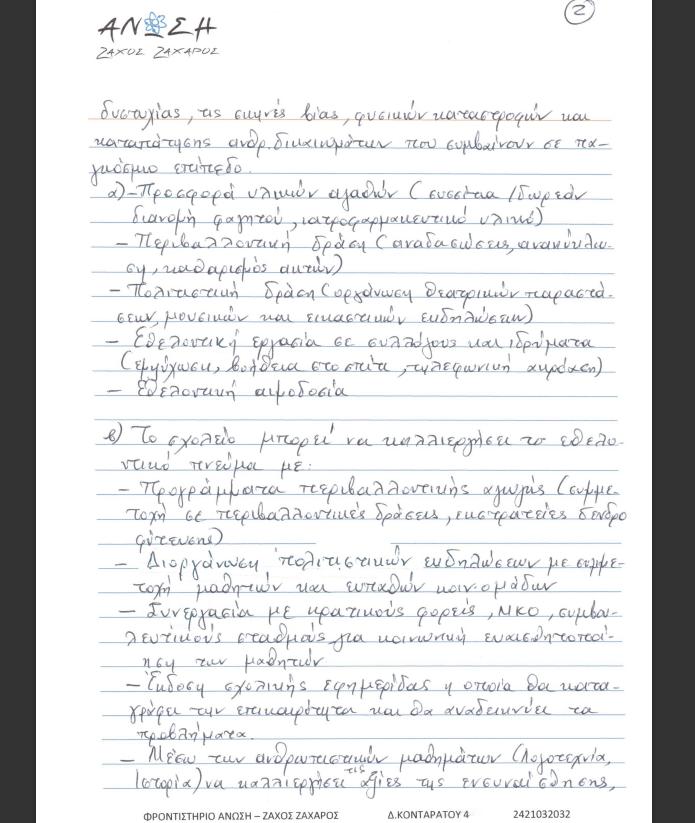 ΑΝΩΣΗ
ΖΑΧΟΣ ΖΑΧΑΡΟΣ
2
δυστυχίας, τις σκηνές βίας, φυσικών καταστροφών και
καταπάτησης ανθρ. δικαιωμάτων που συμβαίνουν σε πα-
γκόσμιο επίπεδο.
α) - Προσφορά υλικών αγαθών (συσσίτια / δωρεάν
διανομή φαγητού, ιατροφαρμακευτικό υλικό)
- Περιβαλλοντική δράση (αναδασώσεις, ανακύκλω-
ση, καθαρισμός ακτών)
- Πολιτιστική δράση (οργάνωση θεατρικών παραστά-
σεων, μουσικών και εικαστικών εκδηλώσεων)
- Εθελοντική εργασία σε συλλόγους και ιδρύματα
(εμψύχωση, βοήθεια στο σπίτι, τηλεφωνική ακρόαση)
- Εθελοντική αιμοδοσία
β) Το σχολείο μπορεί να καλλιεργήσει το εθελο-
ντικό πνεύμα με:
- Προγράμματα περιβαλλοντικής αγωγής (συμμε-
τοχή σε περιβαλλοντικές δράσεις, εκστρατείες δενδρο
φύτευσης)
- Διοργάνωση πολιτιστικών εκδηλώσεων με συμμε-
τοχή μαθητών και ευπαθών κοιν. ομάδων
- Συνεργασία με κρατικούς φορείς, ΜΚΟ, συμβου-
λευτικούς σταθμούς για κοινωνική ευαισθητοποί-
ηση των μαθητών
- Έκδοση σχολικής εφημερίδας η οποία θα κατα-
γράφει την επικαιρότητα και θα αναδεικνύει τα
προβλήματα.
- Μέσω των ανθρωπιστικών μαθημάτων (Λογοτεχνία,
Ιστορία) να καλλιεργήσει τις αξίες της ενσυναίσθησης,
ΦΡΟΝΤΙΣΤΗΡΙΟ ΑΝΩΣΗ – ΖΑΧΟΣ ΖΑΧΑΡΟΣ Δ.ΚΟΝΤΑΡΑΤΟΥ 4 2421032032